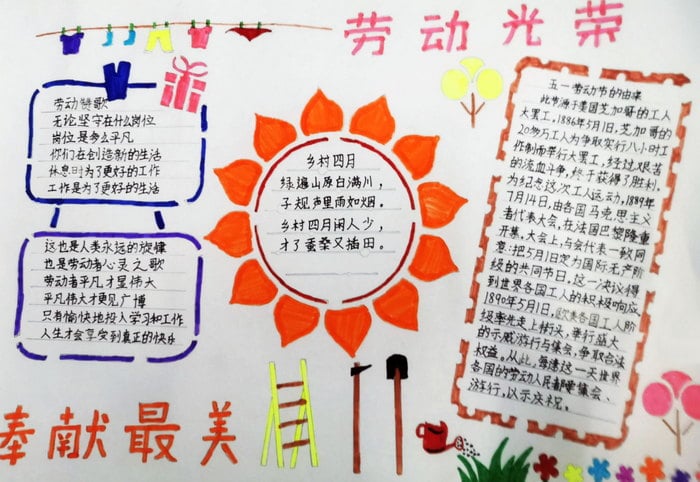 劳动光荣
劳动赞歌
无论坚守在什么岗位
岗位是多么平凡
你们在创造新的生活
休息时为了更好的工作
工作是为了更好的生活
这也是人类永远的旋律
也是劳动者心灵之歌
劳动者平凡才显伟大
平凡伟大才更见广博
只有愉快地投入学习和工作
人生才会享受到真正的快乐
乡村四月
绿遍山原白满川，
子规声里雨如烟。
乡村四月闲人少，
才了蚕桑又插田。
五一劳动节的由来
此节源于美国芝加哥的工人
大罢工，1886年5月1日，芝加哥的
20多万工人为争取实行八小时工
作制而举行大罢工，经过艰苦
的流血斗争，终于获得了胜利。
为纪念这次工人运动，1889年
7月14日，由各国马克思主义
者代表大会，在法国巴黎隆重
开幕，大会上，与会代表一致同
意：把5月1日定为国际无产阶
级的共同节日。这一决议得
到世界各国工人的积极响应。
1890年5月1日，欧美各国工人阶
级率先走上街头，举行盛大
的示威游行与集会，争取合法
权益。从此，每逢这一天世界
各国的劳动人民都要集会、
游行，以示庆祝。
奉献最美